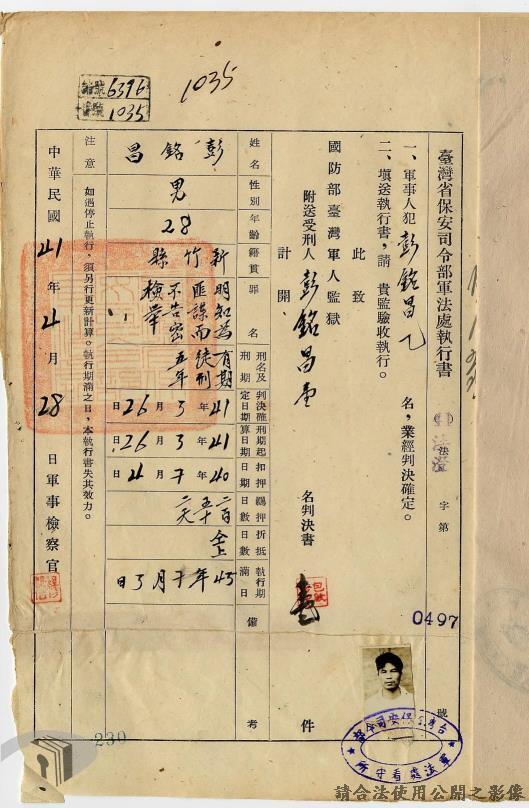 1035
6396
1035
臺灣省保安司令部軍法處執行書
法 字第 0497 號
一、軍事人犯 彭銘昌乙 名，業經判決確定。
二、填送執行書，請 貴監驗收執行。
此致
國防部臺灣軍人監獄
附送受刑人 彭銘昌 名判決書 壹 件
計開
姓名 彭銘昌
性別 男
年齡 28
籍貫 新竹縣
罪名 明知為匪諜而不告密檢舉
刑名及刑期 有期徒刑五年
判決確定日期 41年3月26日
刑期起算日期 41年3月26日
扣押日期
羈押日數
折抵日數 仝上
執行期滿日
備考
注意 如遇停止執行，須另行更新計算。執行期滿之日，本執行書失其效力。
中華民國 41 年 4 月 28 日軍事檢察官
軍法處看守所
230
請合法使用公開之影像